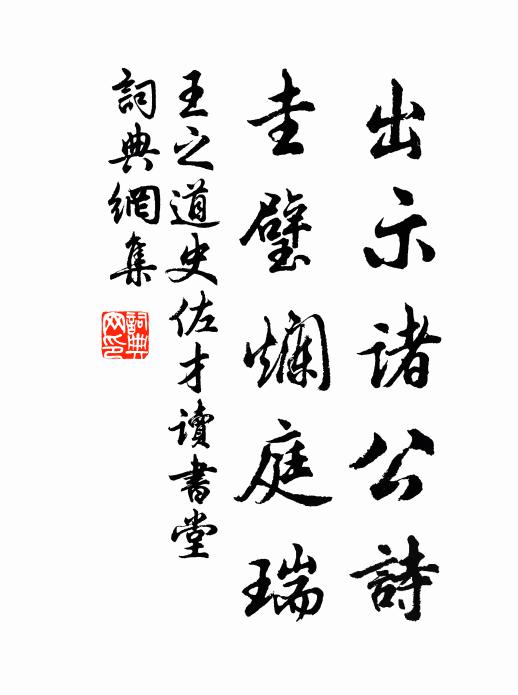 出示諸公詩
圭璧爛庭瑞
王之道史佐才讀書堂
詞典網集
詞典網印